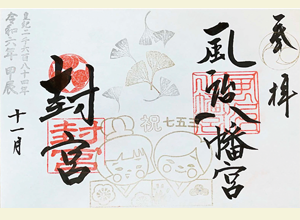 奉拝
風治八幡宮
祝 七五三
封宮
皇紀二千六百八十四年
令和六年 甲辰
十一月